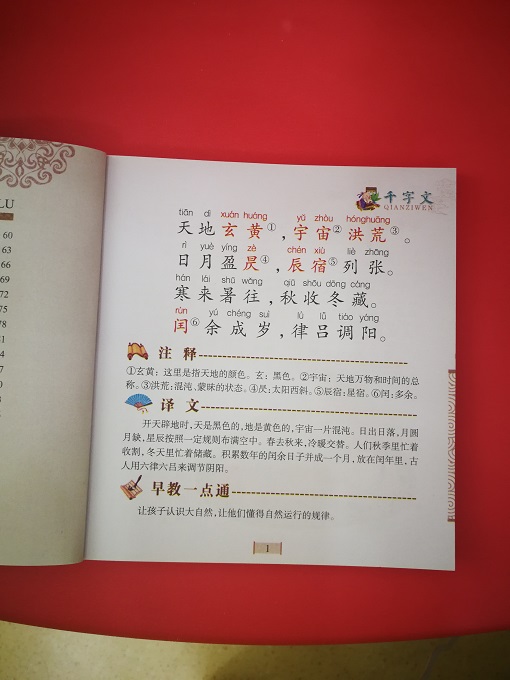 LU
60
63
66
69
72
75
78
81
84
87
90
93
95
千字文
QIANZIWEN
tiān dì xuán huáng yǔ zhòu hónghuāng
天地玄黄①,宇宙②洪荒③。
rì yuè yíng zè chén xiù liè zhāng
日月盈昃④,辰宿⑤列张。
hán lái shǔ wǎng qiū shōu dōng cáng
寒来暑往,秋收冬藏。
rùn yú chéng suì lǜ lǚ tiáo yáng
闰⑥余成岁,律吕调阳。
注释
①玄黄:这里是指天地的颜色。玄:黑色。②宇宙:天地万物和时间的总
称。③洪荒:混沌、蒙昧的状态。④昃:太阳西斜。⑤辰宿:星宿。⑥闰:多余。
译文
开天辟地时,天是黑色的,地是黄色的,宇宙一片混沌。日出日落,月圆
月缺,星辰按照一定规则布满空中。春去秋来,冷暖交替。人们秋季里忙着
收割,冬天里忙着储藏。积累数年的闰余日子并成一个月,放在闰年里,古
人用六律六吕来调节阴阳。
早教一点通
让孩子认识大自然,让他们懂得自然运行的规律。
1